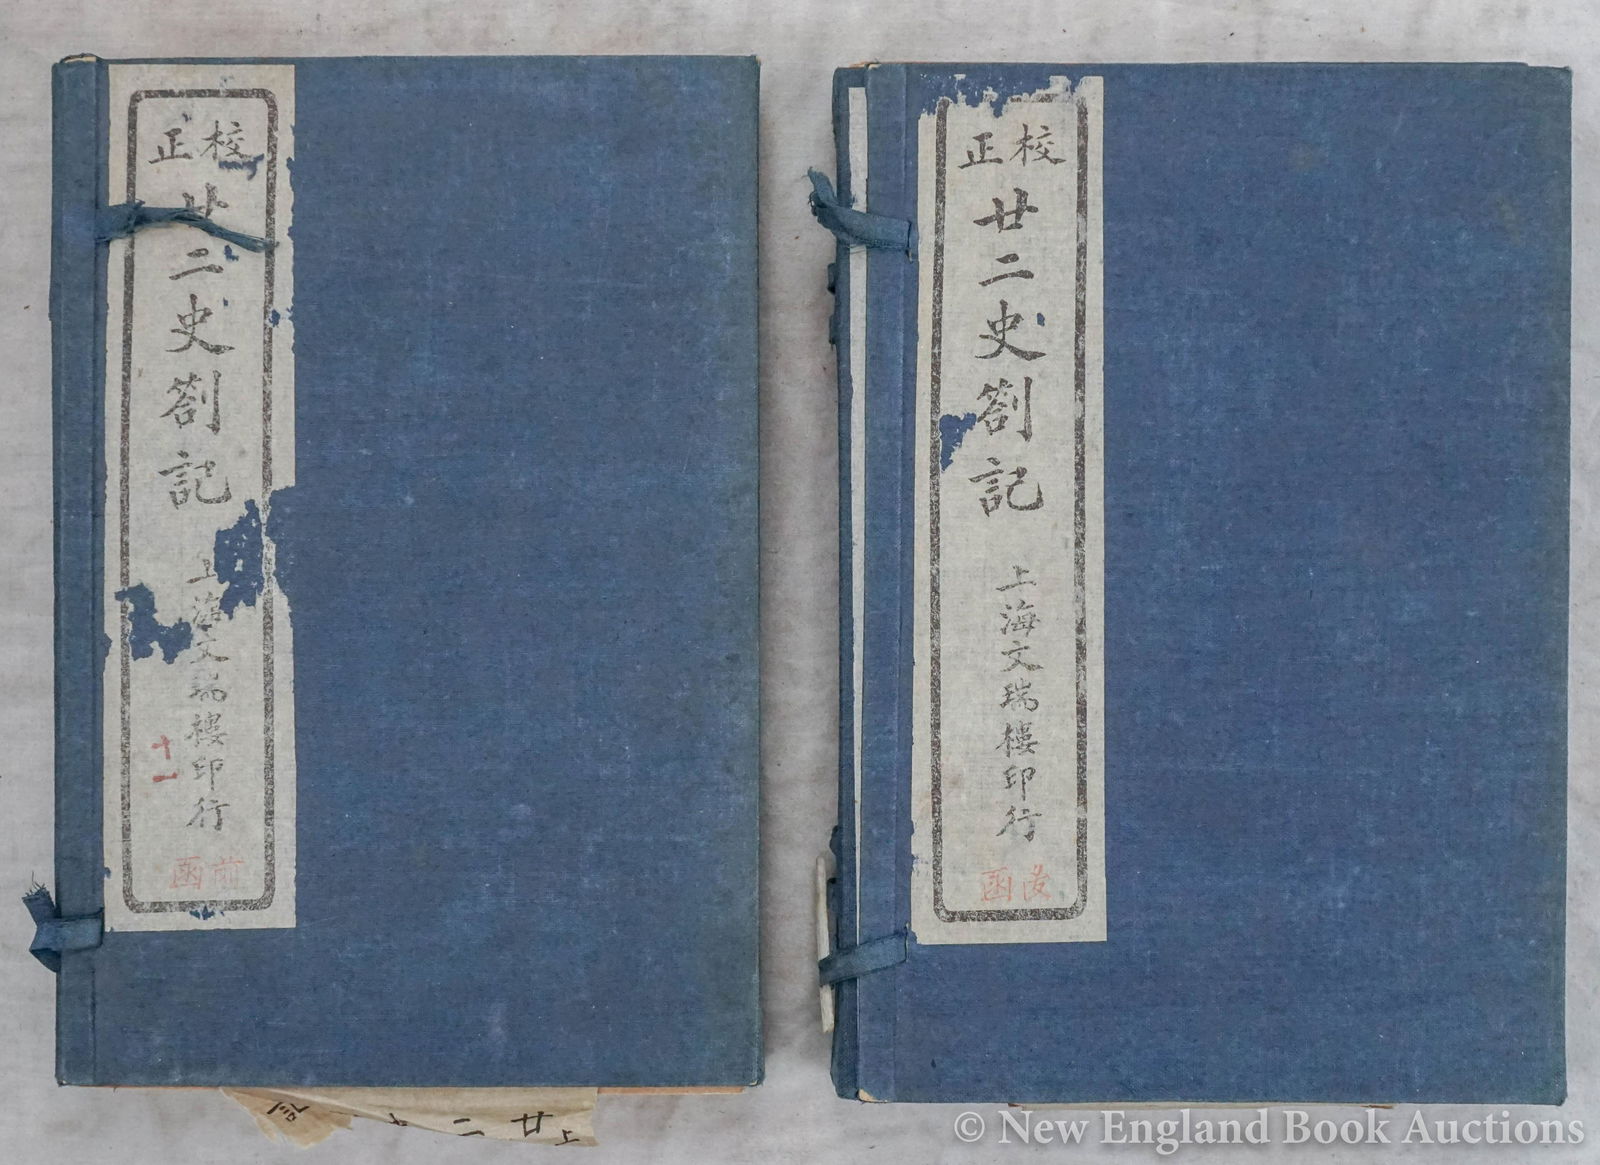 校正
廿二史劄記
上海文瑞樓印行
十一
前函
校正
廿二史劄記
上海文瑞樓印行
後函
上
廿二
記
© New England Book Auctions